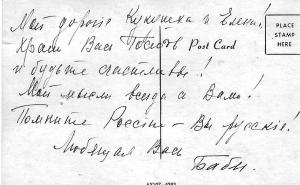 Мои дорогие Кукушка и Елена!
Храни Вас Господь
Post Card
PLACE
STAMP
HERE
и будьте счастливы!
Мои мысли всегда с Вами!
Помните Россию – Вы русские!
Любящая Вас
Баби.